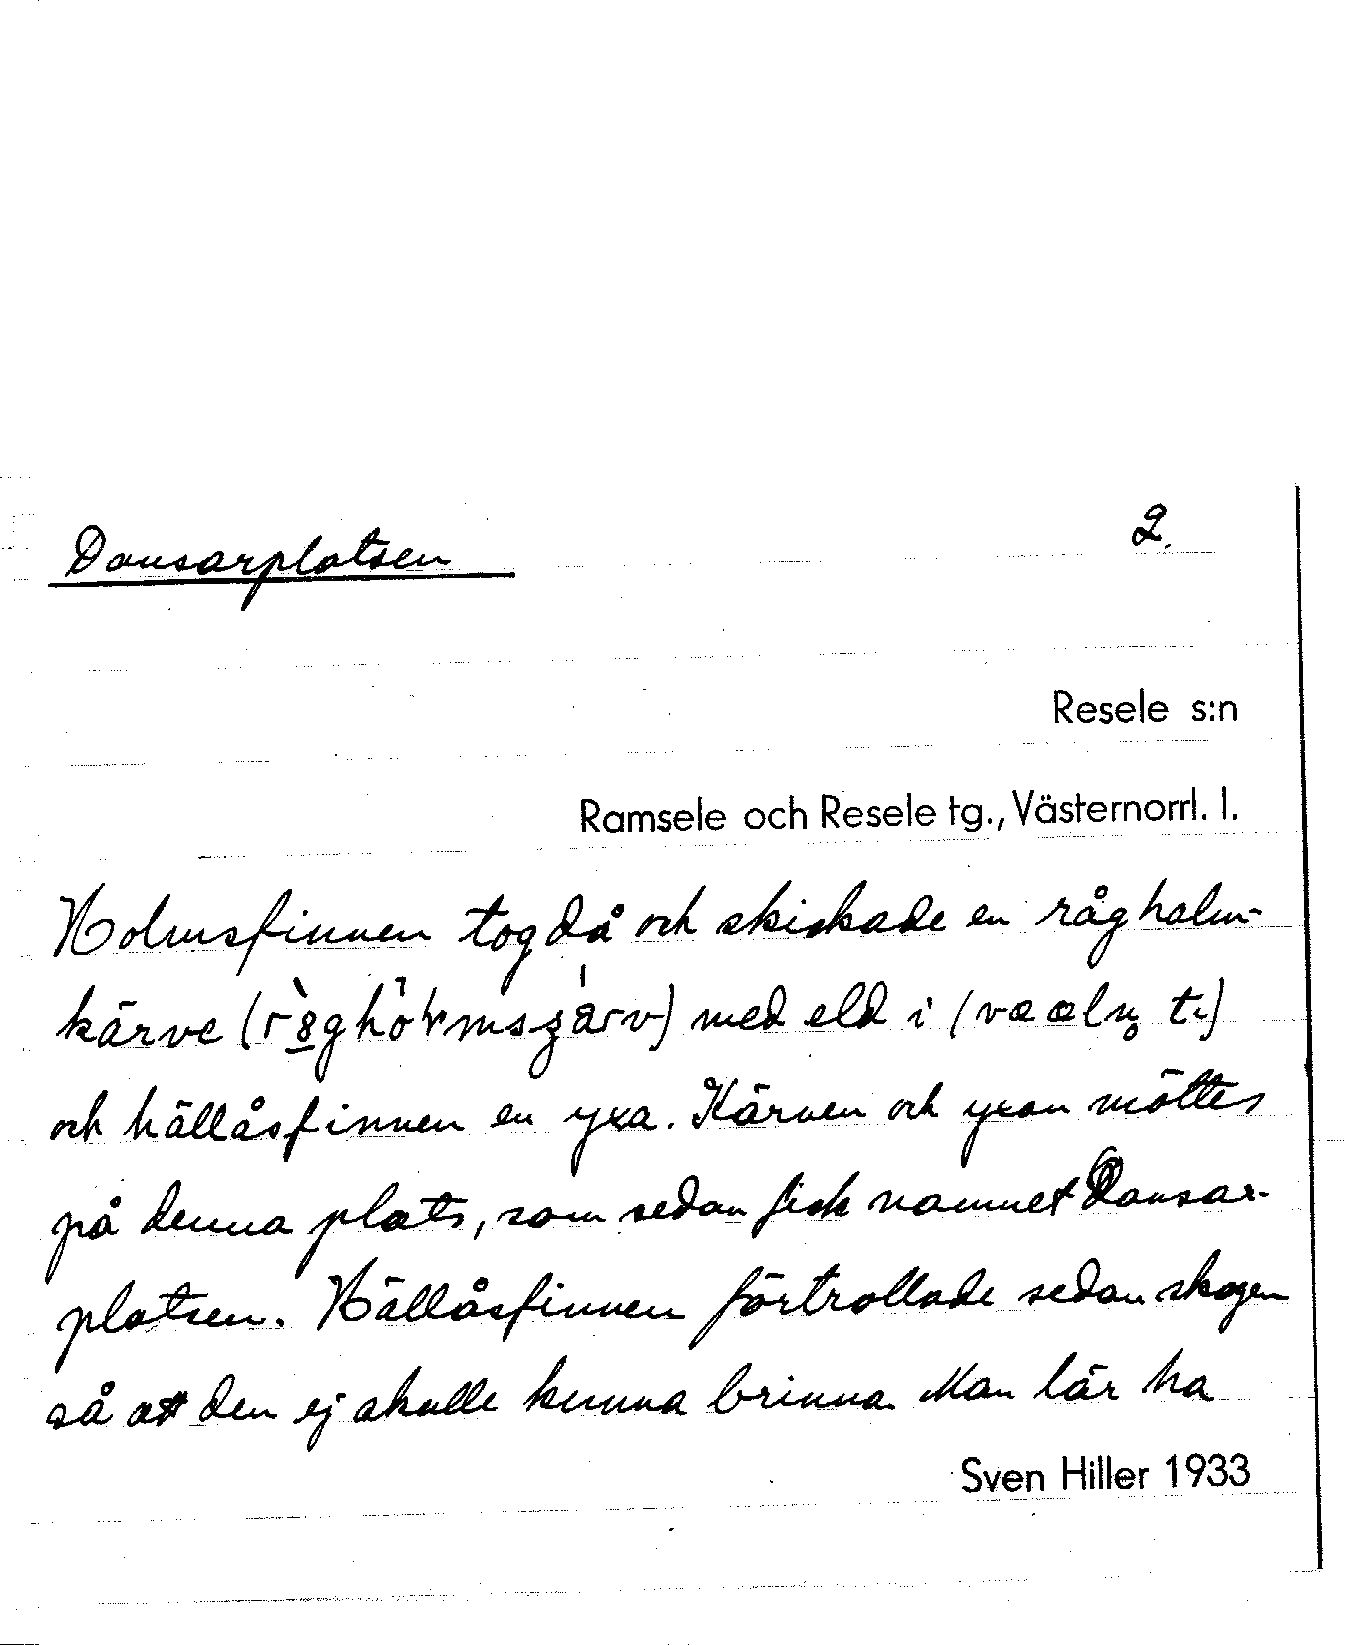 Dansarplatsen 2.
Resele s:n
Ramsele och Resele tg., Västernorrl. l.
Holmsfinnen tog då och skickade en råghalm-
kärve ( med eld i (
och hällåsfinnen en yxa. Kärven och yxan möttes
på denna plats, som sedan fick namnet Dansar-
platsen. Hällåsfinnen förtrollade sedan skogen
så att den ej skulle kunna brinna. Man lär ha
Sven Hiller 1933